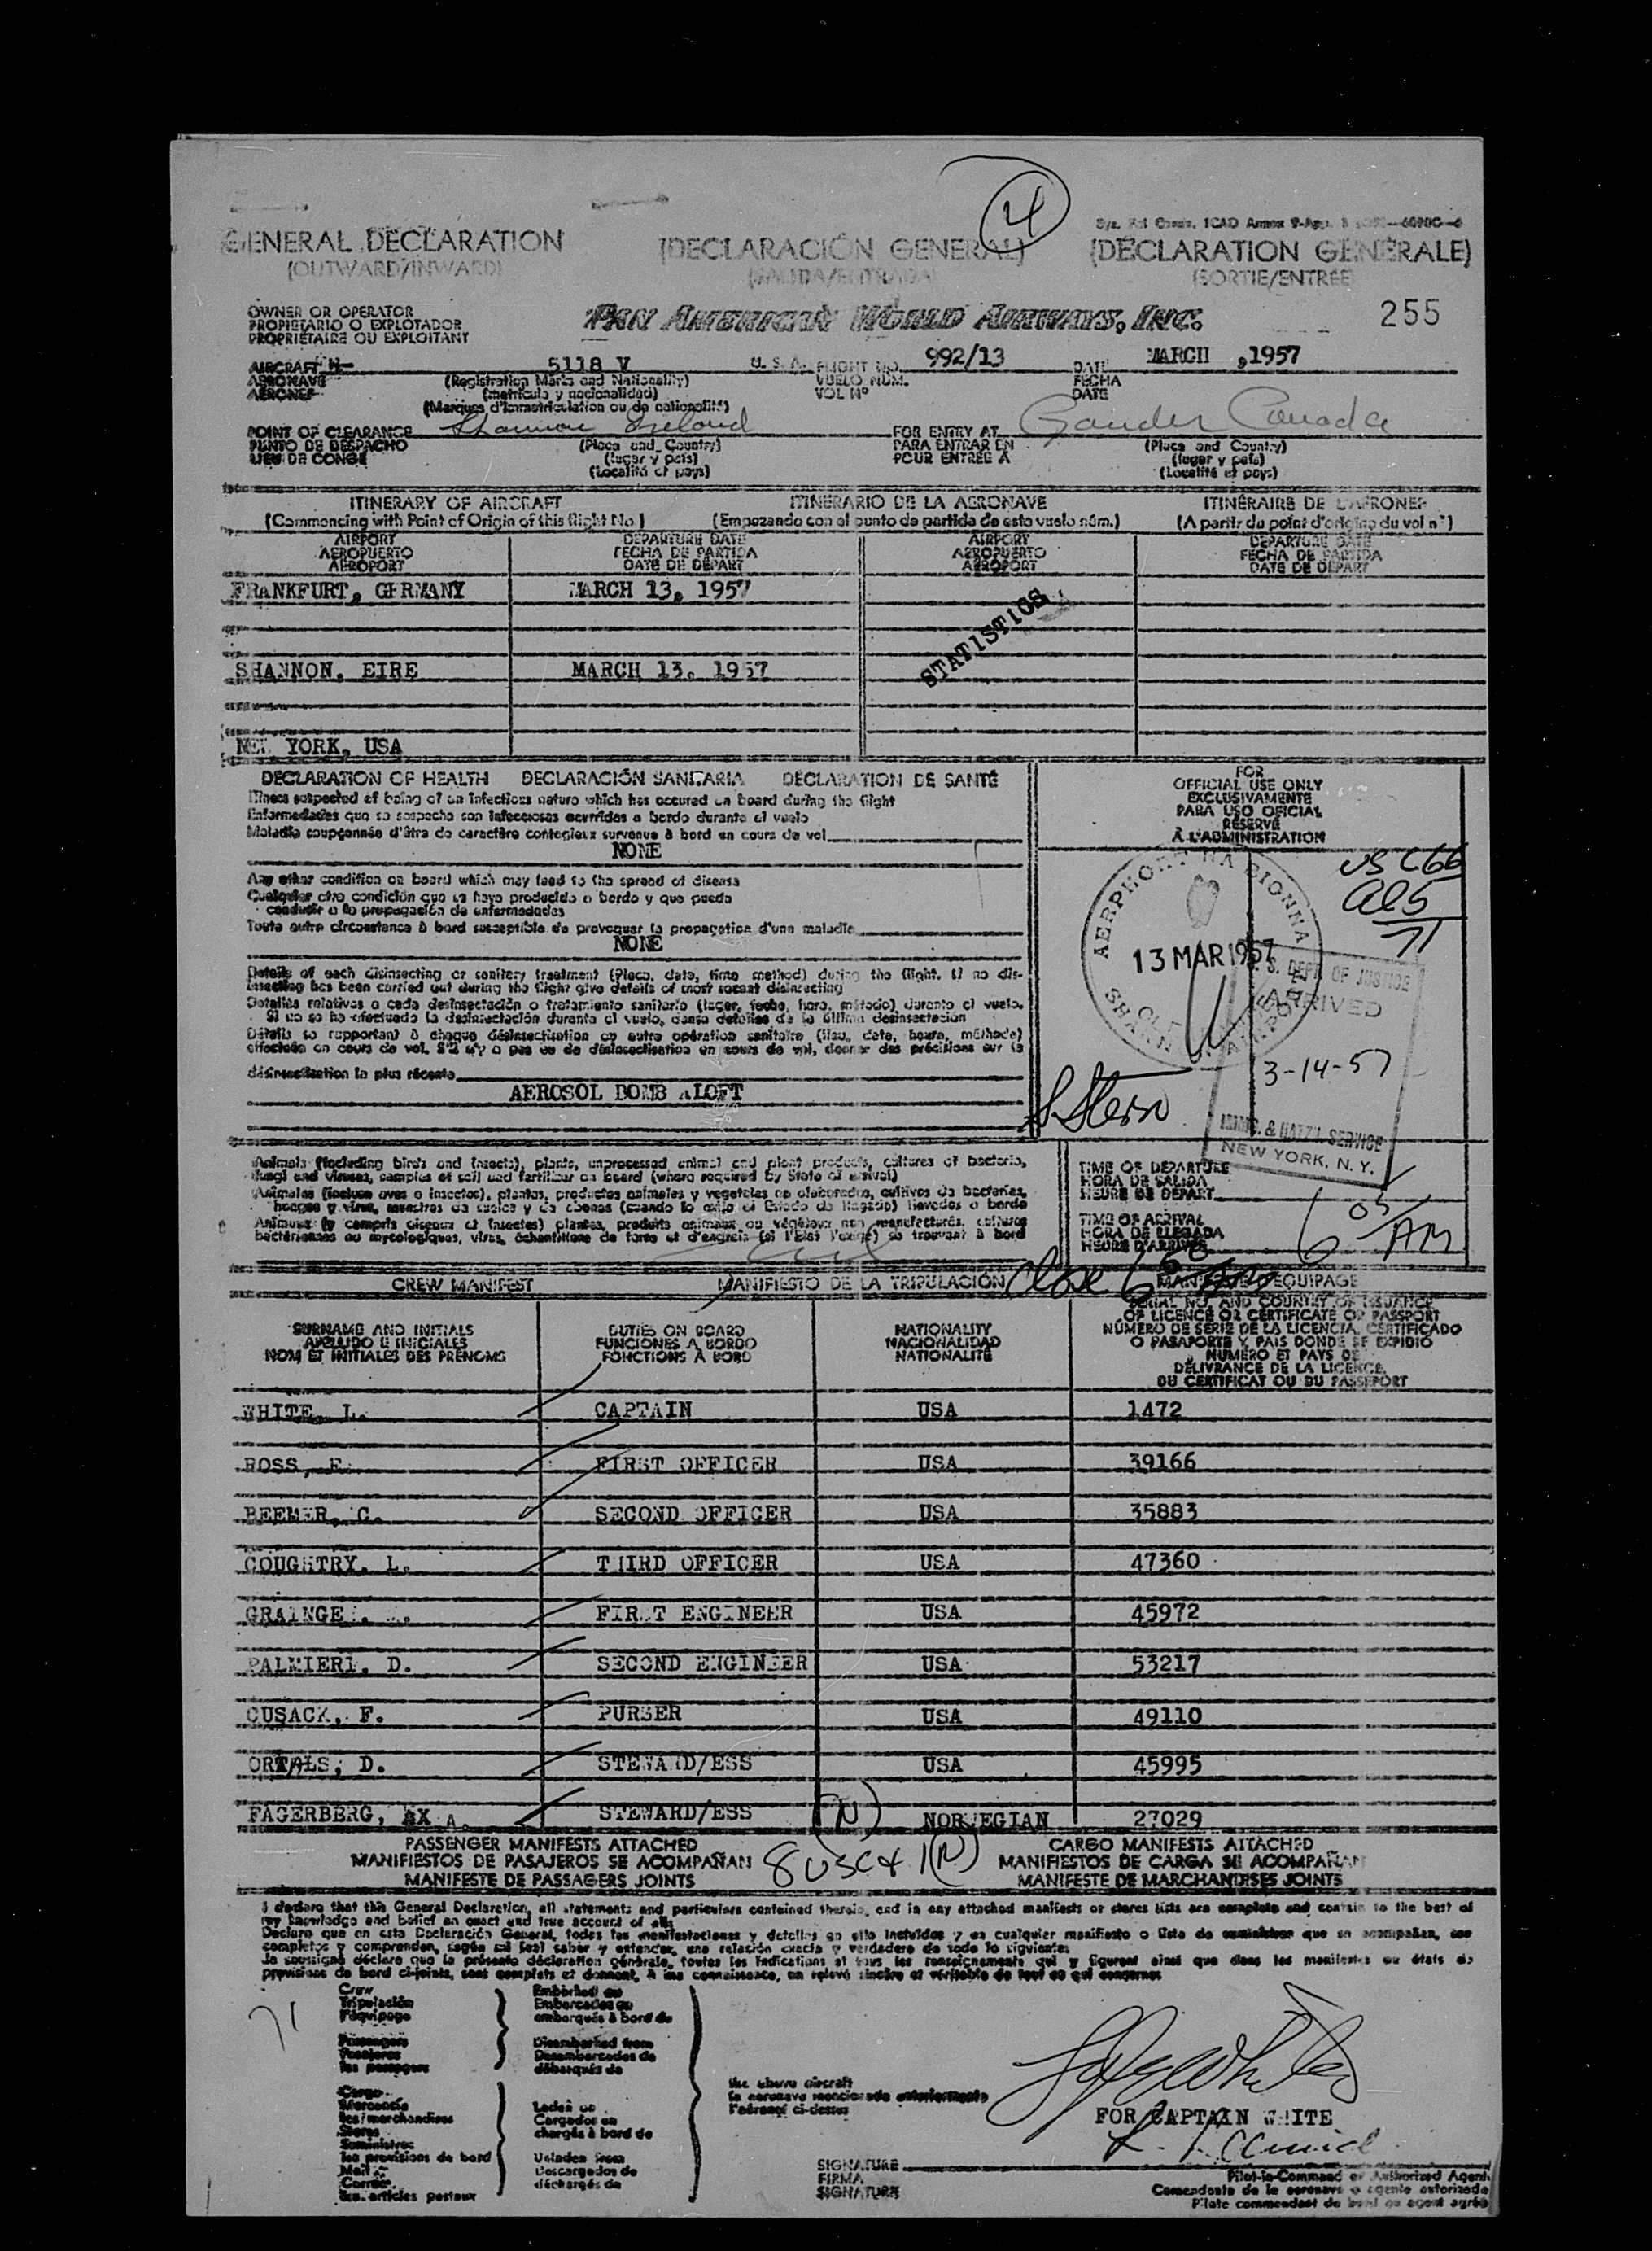 4
GENERAL DECLARATION (DECLARACIÓN GENERAL) (DÉCLARATION GÉNÉRALE)
(OUTWARD/INWARD) (SALIDA/ENTRADA) (SORTIE/ENTRÉE)
OWNER OR OPERATOR
PROPIETARIO O EXPLOTADOR
PROPRIÉTAIRE OU EXPLOITANT
PAN AMERICAN WORLD AIRWAYS, INC. 255
AIRCRAFT N- 5118 V U. S. A. FLIGHT NO. 992/13 DATE MARCH ,1957
AERONAVE (Registration Marks and Nationality) VUELO NÚM. FECHA
AÉRONEF (matrícula y nacionalidad) VOL Nº DATE
(Marques d'immatriculation ou de nationalité)
POINT OF CLEARANCE Shannon Ireland FOR ENTRY AT Gander Canada
PUNTO DE DESPACHO (Place and Country) PARA ENTRAR EN (Place and Country)
LIEU DE CONGÉ (lugar y país) POUR ENTRÉE À (lugar y país)
(Localité et pays) (Localité et pays)
ITINERARY OF AIRCRAFT ITINERARIO DE LA AERONAVE ITINÉRAIRE DE L'AÉRONEF
(Commencing with Point of Origin of this flight No.) (Empezando con el punto de partida de este vuelo núm.) (A partir du point d'origine du vol nº)
AIRPORT DEPARTURE DATE AIRPORT DEPARTURE DATE
AEROPUERTO FECHA DE PARTIDA AEROPUERTO FECHA DE PARTIDA
AÉROPORT DATE DE DÉPART AÉROPORT DATE DE DÉPART
FRANKFURT, GERMANY MARCH 13, 1957
STATISTICS
SHANNON, EIRE MARCH 13. 1957
NEW YORK, USA
DECLARATION OF HEALTH DECLARACIÓN SANITARIA DÉCLARATION DE SANTÉ
Illness suspected of being of an infectious nature which has occured on board during the flight
Enfermedades que se sospecha son infecciosas ocurridas a bordo durante el vuelo
Maladie soupçonnée d'être de caractère contagieux survenue à bord en cours de vol
NONE
Any other condition on board which may lead to the spread of disease
Cualquier otra condición que se haya producido a bordo y que pueda
conducir a la propagación de enfermedades
Toute autre circonstance à bord susceptible de provoquer la propagation d'une maladie
NONE
Details of each disinsecting or sanitary treatment (Place, date, time method) during the flight. If no dis-
insecting has been carried out during the flight give details of most recent disinsecting
Detalles relativos a cada desinsectación o tratamiento sanitario (lugar, fecha, hora, método) durante el vuelo.
Si no se ha efectuado la desinsectación durante el vuelo, dense detalles de la última desinsectación
Détails se rapportant à chaque désinsectisation ou autre opération sanitaire (lieu, date, heure, méthode)
effectuée en cours de vol. S'il n'y a pas eu de désinsectisation en cours de vol, donner des précisions sur la
désinsectisation la plus récente
AEROSOL BOMB ALOFT
FOR
OFFICIAL USE ONLY
EXCLUSIVAMENTE
PARA USO OFICIAL
RÉSERVÉ
À L'ADMINISTRATION
USC 66
al 5
71
13 MAR 1957
U. S. DEPT. OF JUSTICE
ARRIVED
3-14-57
IMMIG. & NATZ'N. SERVICE
NEW YORK, N. Y.
S. Stern
Animals (including birds and insects), plants, unprocessed animal and plant products, cultures of bacteria,
fungi and viruses, samples of soil and fertilizer on board (where required by State of arrival)
Animales (incluso aves o insectos), plantas, productos animales y vegetales no elaborados, cultivos de bacterias,
hongos y virus, muestras de suelos y de abonos (cuando lo exija el Estado de llegada) llevados a bordo
Animaux (y compris oiseaux et insectes) plantes, produits animaux ou végétaux non manufacturés, cultures
bactériennes ou mycologiques, virus, échantillons de terre et d'engrais (si l'État l'exige) se trouvant à bord
TIME OF DEPARTURE
HORA DE SALIDA
HEURE DE DÉPART
TIME OF ARRIVAL
HORA DE LLEGADA
HEURE D'ARRIVÉE
6 05 AM
CREW MANIFEST MANIFIESTO DE LA TRIPULACIÓN Close 6 MANIFESTE ÉQUIPAGE
SURNAME AND INITIALS DUTIES ON BOARD NATIONALITY SERIAL NO. AND COUNTRY OF ISSUANCE
APELLIDO E INICIALES FUNCIONES A BORDO NACIONALIDAD OF LICENCE OR CERTIFICATE OR PASSPORT
NOM ET INITIALES DES PRÉNOMS FONCTIONS À BORD NATIONALITÉ NÚMERO DE SERIE DE LA LICENCIA, CERTIFICADO
O PASAPORTE Y PAIS DONDE SE EXPIDIÓ
NUMÉRO ET PAYS DE
DÉLIVRANCE DE LA LICENCE,
DU CERTIFICAT OU DU PASSEPORT
WHITE, L. CAPTAIN USA 1472
ROSS, E. FIRST OFFICER USA 39166
BEEMER, C. SECOND OFFICER USA 35883
COUGHTRY, L. THIRD OFFICER USA 47360
GRAINGE FIRST ENGINEER USA 45972
PALMIERI, D. SECOND ENGINEER USA 53217
CUSACK, F. PURSER USA 49110
ORTALS, D. STEWARD/ESS USA 45995
FAGERBERG, A. STEWARD/ESS (N) NORWEGIAN 27029
PASSENGER MANIFESTS ATTACHED CARGO MANIFESTS ATTACHED
MANIFIESTOS DE PASAJEROS SE ACOMPAÑAN 8 USC + 1(N) MANIFIESTOS DE CARGA SE ACOMPAÑAN
MANIFESTE DE PASSAGERS JOINTS MANIFESTE DE MARCHANDISES JOINTS
I declare that this General Declaration, all statements and particulars contained therein, and in any attached manifests or stores lists are complete and contain to the best of
my knowledge and belief an exact and true account of all:
Declaro que en esta Declaración General, todas las manifestaciones y detalles en ella incluídos y en cualquier manifiesto o lista de suministros que se acompañan, son
completos y comprenden, según mi leal saber y entender, una relación exacta y verdadera de todo lo siguiente:
Je soussigné déclare que la présente déclaration générale, toutes les indications et tous les renseignements qui y figurent ainsi que dans les manifestes ou états de
provisions de bord ci-joints, sont complets et donnent, à ma connaissance, un relevé sincère et véritable de tout ce qui concerne:
71
Crew Embarked on
Tripulación Embarcados en
l'équipage embarqués à bord de
Passengers Disembarked from
Pasajeros Desembarcados de
les passagers débarqués de
the above aircraft
la aeronave mencionada anteriormente
l'aéronef ci-dessus
Cargo
Mercancía Laden on
les marchandises Cargados en
Stores chargés à bord de
Suministros
les provisions de bord Unladen from
Mail Descargados de
Correo déchargés de
les articles postaux
FOR CAPTAIN WHITE
SIGNATURE
FIRMA
SIGNATURE
Pilot-in-Command or Authorized Agent
Comandante de la aeronave o agente autorizado
Pilote commandant de bord ou agent agréé